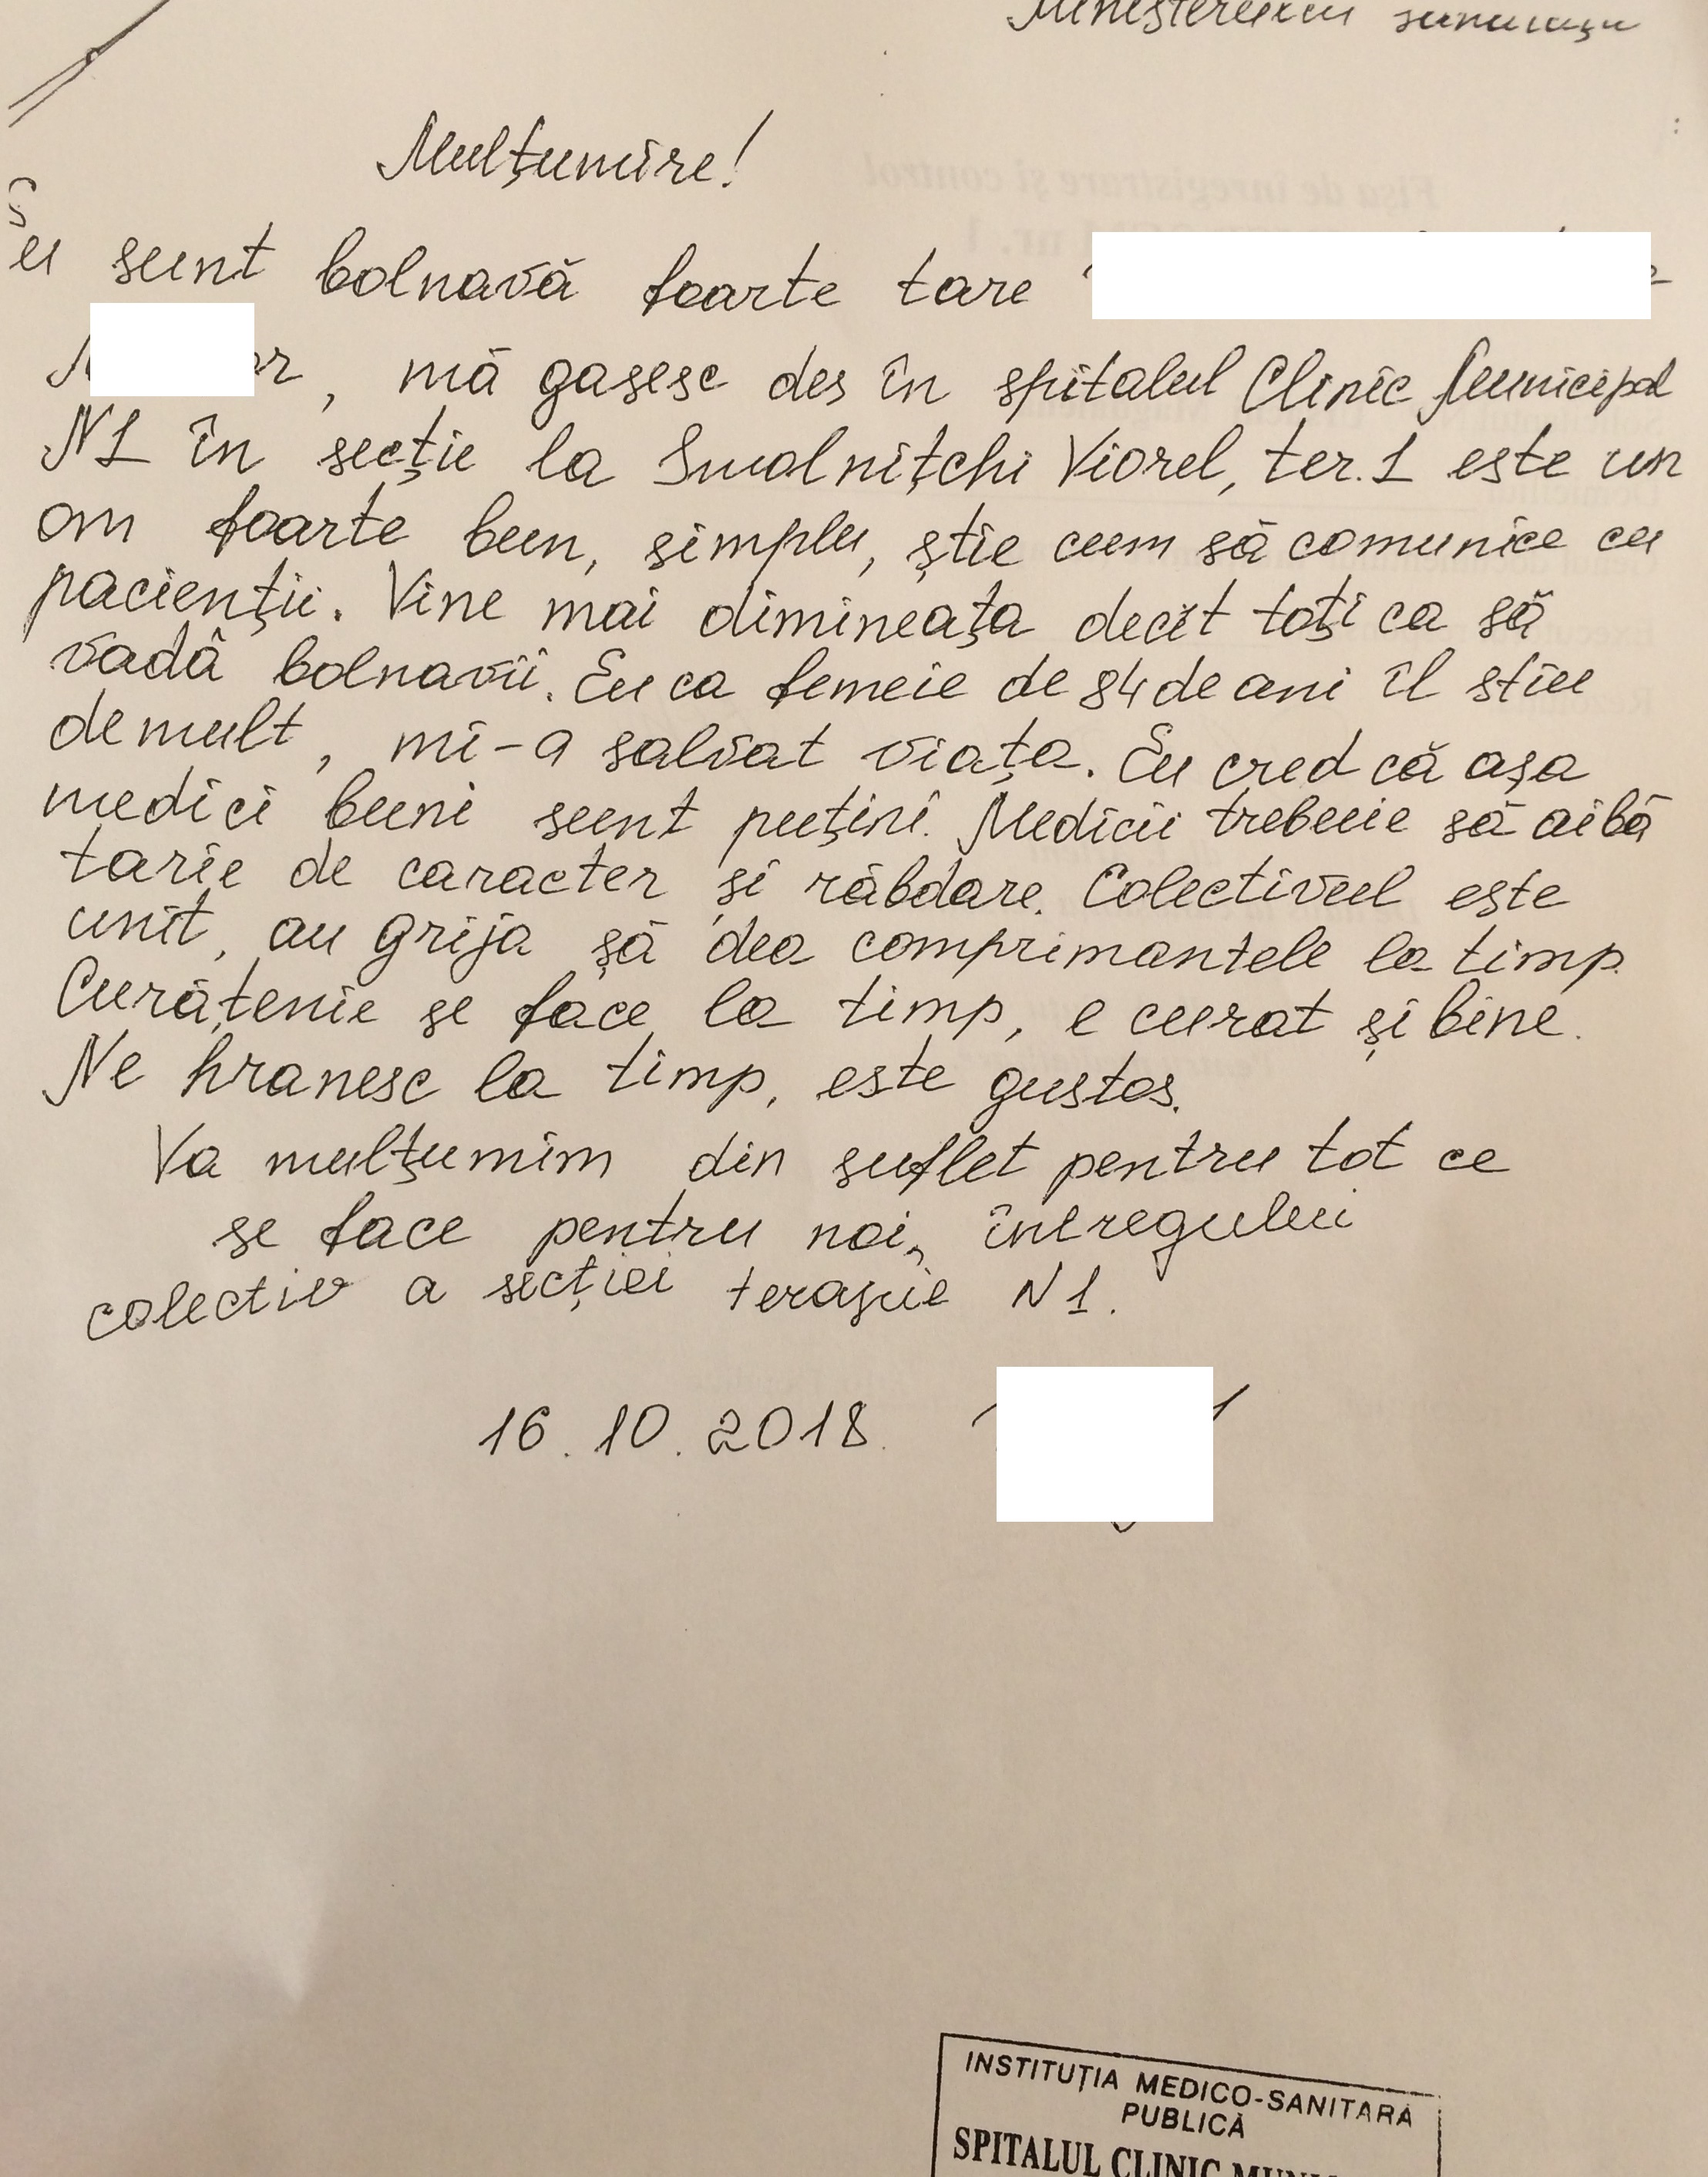 Ministerului sănătății
Mulțumire!
Eu sunt bolnavă foarte tare
, mă gasesc des în spitalul Clinic Municipal
N1 în secție la Smolnițchi Viorel, ter. 1 este un
om foarte bun, simplu, știe cum să comunice cu
pacienții. Vine mai dimineața decît toți ca să
vadă bolnavii. Eu ca femeie de 84 de ani îl stiu
demult, mi-a salvat viața. Eu cred că așa
medici buni sunt puțini. Medicii trebuie să aibă
tarie de caracter și răbdare. Colectivul este
unit, au grija să dea comprimantele la timp.
Curățenie se face la timp, e curat și bine.
Ne hranesc la timp, este gustos.
Va mulțumim din suflet pentru tot ce
se face pentru noi, întregului
colectiv a secției terapie N1.
16.10.2018.
INSTITUȚIA MEDICO-SANITARĂ
PUBLICĂ
SPITALUL CLINIC